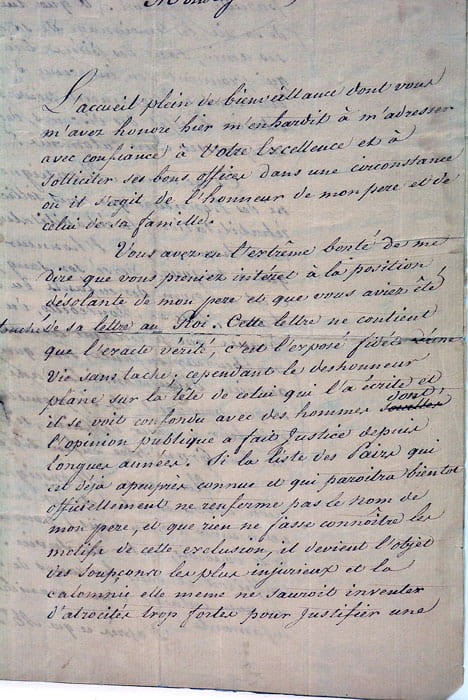 L'accueil plein de bienveillance dont vous
m'avez honoré hier m'enhardit à m'adresser
avec confiance à Votre Excellence et à
solliciter ses bons offices dans une circonstance
où il s'agit de l'honneur de mon pere et de
celui de sa famille.
Vous avez eu l'extrême bonté de me
dire que vous preniez intéret à la position
désolante de mon pere et que vous aviez été
touché de sa lettre au Roi. Cette lettre ne contient
que l'exacte vérité, c'est l'exposé fidèle d'une
vie sans tache; cependant le deshonneur
plane sur la tête de celui qui l'a écrite et
il se voit confondu avec des hommes dont
l'opinion publique a fait Justice depuis
longues années. Si la liste des Pairs qui
est déja apeuprès connue et qui paroitra bientot
officiellement ne renferme pas le nom de
mon pere, et que rien ne fasse connoître les
motifs de cette exclusion, il devient l'objet
des soupçons les plus injurieux et la
calomnie elle meme ne sauroit inventer
d'atrocités trop fortes pour Justifier une